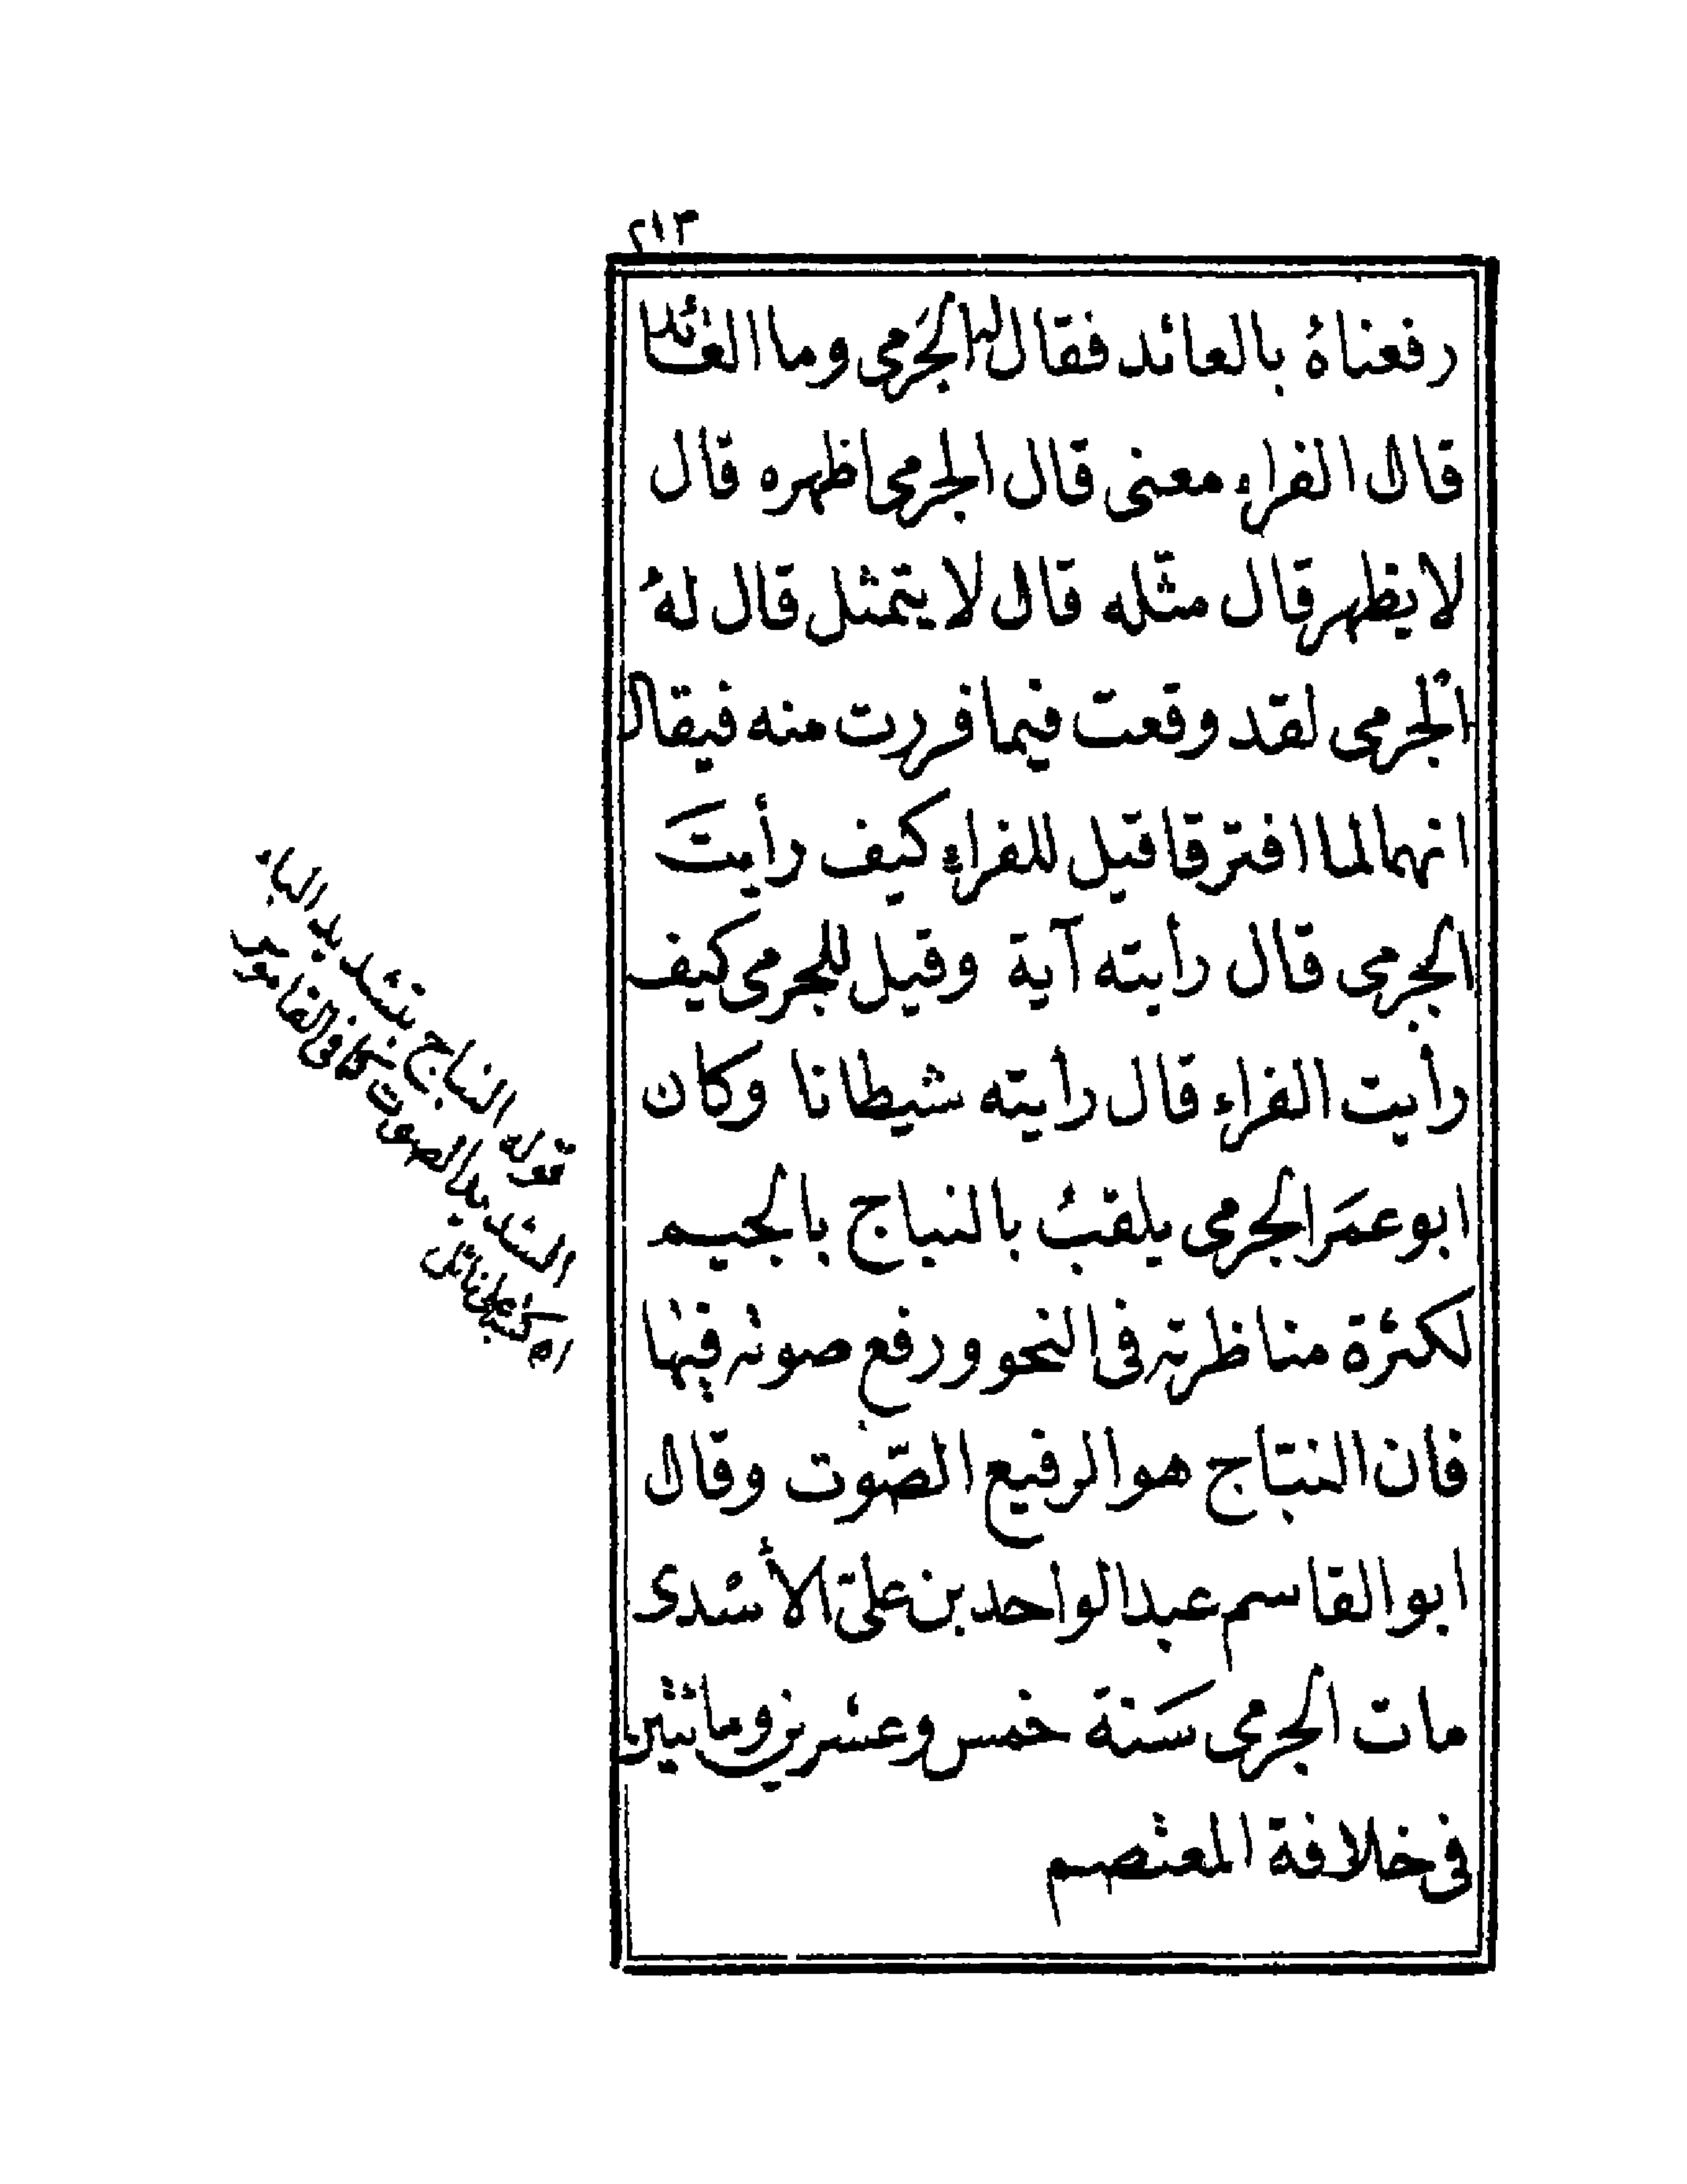 ٢١٣
رفعناهُ بالعائد فقال له الجَرمى وما العائد
قال الفراء معنى قال الجرمى اظهره قال
لا يظهر قال مثّله قال لا يتمثل قال لهُ
الجرمى لقد وقعت فيما فررت منه فيقال
انهما لما افترقا قيل للفراءِ كيف رأيتَ
الجرمى قال رأيته آية وقيل للجرمى كيف
رأيت الفراء قال رأيته شيطانا وكان
ابو عمَر الجرمى يلقبُ بالنباج بالجيم
لكثرة مناظرته فى النحو ورفع صوته فيها
فان النبّاج هو الرفيع الصّوت وقال
ابو القاسم عبد الواحد بن علىّ الأسدى
مات الجرمى سَنة خمس وعشرين ومائتين
فى خلافة المعتصم
قوله النباج بتشديد الباء
الشديد الصوت كما فى القاموس
اه